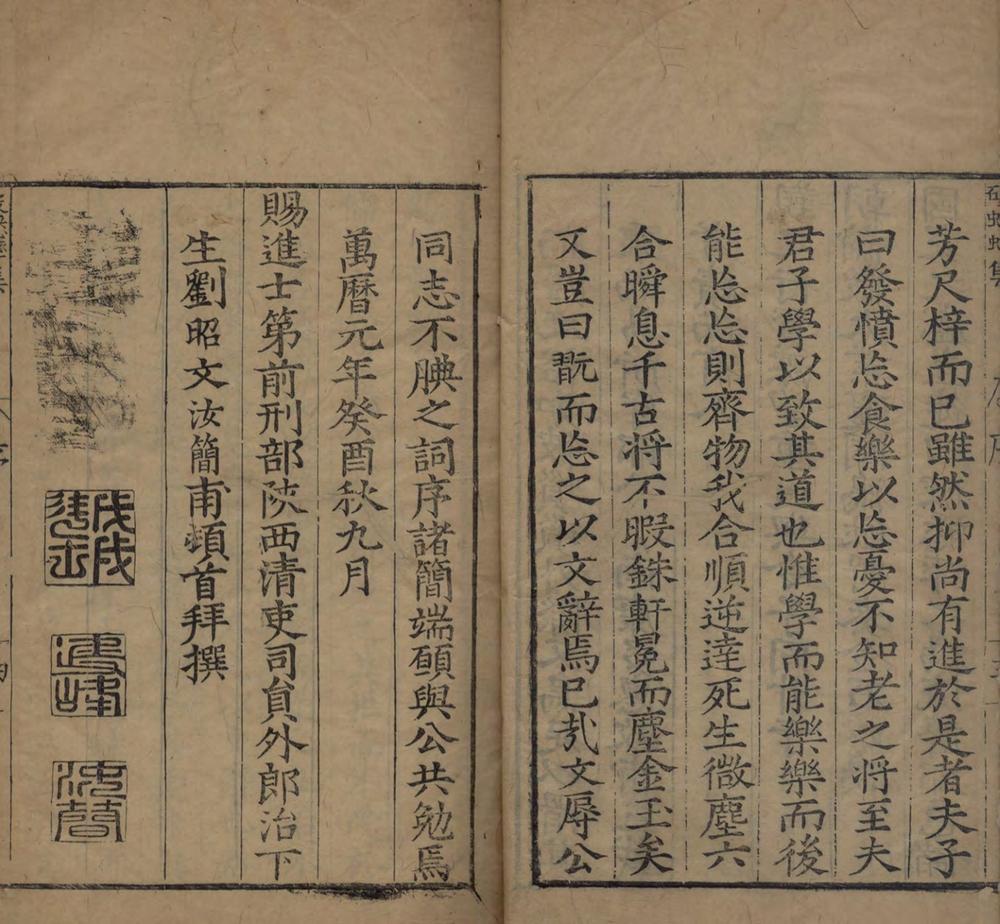 芳尺梓而已雖然抑尚有進於是者夫子
曰發憤忘食樂以忘憂不知老之将至夫
君子學以致其道也惟學而能樂樂而後
能忘忘則齊物我合順逆達死生微塵六
合瞬息千古将不暇銖軒冕而塵金玉矣
又豈曰翫而忘之以文辭焉已㢤文辱公
同志不腆之詞序諸簡端願與公共勉焉
萬曆元年癸酉秋九月
賜進士第前刑部陝西清吏司貟外郎治下
生劉昭文汝簡甫頓首拜撰